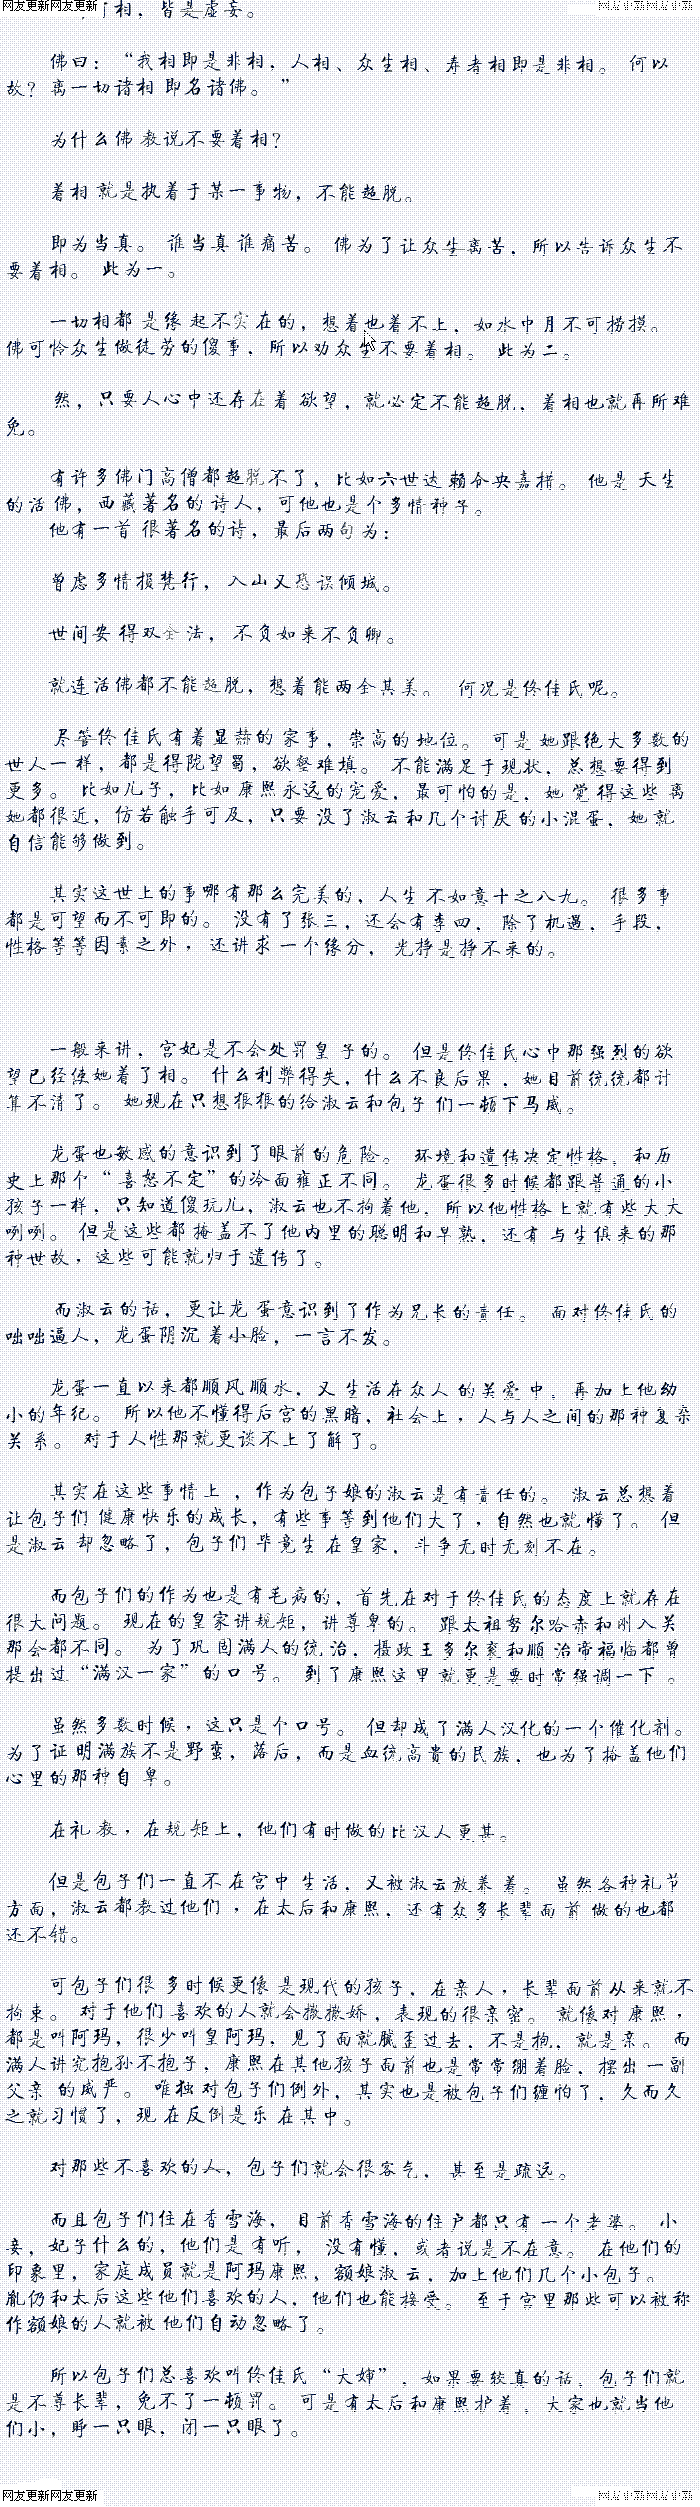 网友更新网友更新
有相，皆是虚妄。
佛曰：“我相即是非相，人相、众生相、寿者相即是非相。何以
故？离一切诸相即名诸佛。”
为什么佛教说不要着相？
着相就是执着于某一事物，不能超脱。
即为当真。谁当真谁痛苦。佛为了让众生离苦，所以告诉众生不
要着相。此为一。
一切相都是缘起不实在的，想着也着不上，如水中月不可捞摸。
佛可怜众生做徒劳的傻事，所以劝众生不要着相。此为二。
然，只要人心中还存在着欲望，就必定不能超脱，着相也就再所难
免。
有许多佛门高僧都超脱不了，比如六世达赖仓央嘉措。他是天生
的活佛，西藏著名的诗人，可他也是个多情种子。
他有一首很著名的诗，最后两句为：
曾虑多情损梵行，入山又恐误倾城。
世间安得双全法，不负如来不负卿。
就连活佛都不能超脱，想着能两全其美。何况是佟佳氏呢。
尽管佟佳氏有着显赫的家事，崇高的地位。可是她跟绝大多数的
世人一样，都是得陇望蜀，欲壑难填。不能满足于现状，总想要得到
更多。比如儿子，比如康熙永远的宠爱，最可怕的是，她觉得这些离
她都很近，仿若触手可及，只要没了淑云和几个讨厌的小混蛋，她就
自信能够做到。
其实这世上的事哪有那么完美的，人生不如意十之八九。很多事
都是可望而不可即的。没有了张三，还会有李四，除了机遇，手段，
性格等等因素之外，还讲求一个缘分，光挣是挣不来的。
一般来讲，宫妃是不会处罚皇子的。但是佟佳氏心中那强烈的欲
望已经使她着了相。什么利弊得失，什么不良后果，她目前统统都计
算不清了。她现在只想狠狠的给淑云和包子们一顿下马威。
龙蛋也敏感的意识到了眼前的危险。环境和遗传决定性格，和历
史上那个“喜怒不定”的冷面雍正不同。龙蛋很多时候都跟普通的小
孩子一样，只知道傻玩儿，淑云也不拘着他，所以他性格上就有些大大
咧咧。但是这些都掩盖不了他内里的聪明和早熟，还有与生俱来的那
种世故，这些可能就归于遗传了。
而淑云的话，更让龙蛋意识到了作为兄长的责任。面对佟佳氏的
咄咄逼人，龙蛋阴沉着小脸，一言不发。
龙蛋一直以来都顺风顺水，又生活在众人的关爱中，再加上他幼
小的年纪。所以他不懂得后宫的黑暗，社会上，人与人之间的那种复杂
关系。对于人性那就更谈不上了解了。
其实在这些事情上，作为包子娘的淑云是有责任的。淑云总想着
让包子们健康快乐的成长，有些事等到他们大了，自然也就懂了。但
是淑云却忽略了，包子们毕竟生在皇家，斗争无时无刻不在。
而包子们的作为也是有毛病的，首先在对于佟佳氏的态度上就存在
很大问题。现在的皇家讲规矩，讲尊卑的。跟太祖努尔哈赤和刚入关
那会都不同。为了巩固满人的统治，摄政王多尔衮和顺治帝福临都曾
提出过“满汉一家”的口号。到了康熙这里就更是要时常强调一下。
虽然多数时候，这只是个口号。但却成了满人汉化的一个催化剂。
为了证明满族不是野蛮，落后，而是血统高贵的民族，也为了掩盖他们
心里的那种自卑。
在礼教，在规矩上，他们有时做的比汉人更甚。
但是包子们一直不在宫中生活，又被淑云放养着。虽然各种礼节
方面，淑云都教过他们，在太后和康熙，还有众多长辈面前做的也都
还不错。
可包子们很多时候更像是现代的孩子，在亲人，长辈面前从来就不
拘束。对于他们喜欢的人就会撒撒娇，表现的很亲密。就像对康熙，
都是叫阿玛，很少叫皇阿玛，见了面就腻歪过去，不是抱，就是亲。而
满人讲究抱孙不抱子，康熙在其他孩子面前也是常常绷着脸，摆出一副
父亲的威严。唯独对包子们例外，其实也是被包子们缠怕了，久而久
之就习惯了，现在反倒是乐在其中。
对那些不喜欢的人，包子们就会很客气，甚至是疏远。
而且包子们住在香雪海，目前香雪海的住户都只有一个老婆。小
妾，妃子什么的，他们是有听，没有懂，或者说是不在意。在他们的
印象里，家庭成员就是阿玛康熙，额娘淑云，加上他们几个小包子。
胤礽和太后这些他们喜欢的人，他们也能接受。至于宫里那些可以被称
作额娘的人就被他们自动忽略了。
所以包子们总喜欢叫佟佳氏“大婶”，如果要较真的话，包子们就
是不尊长辈，免不了一顿罚。可是有太后和康熙护着，大家也就当他
们小，睁一只眼，闭一只眼了。
网友更新网友更新